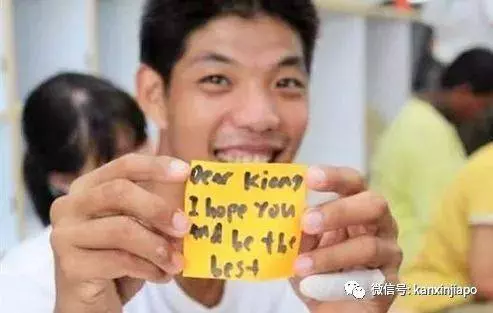 Dear Kiang
I hope you
and be the
best
微信号: kanxinjiapo